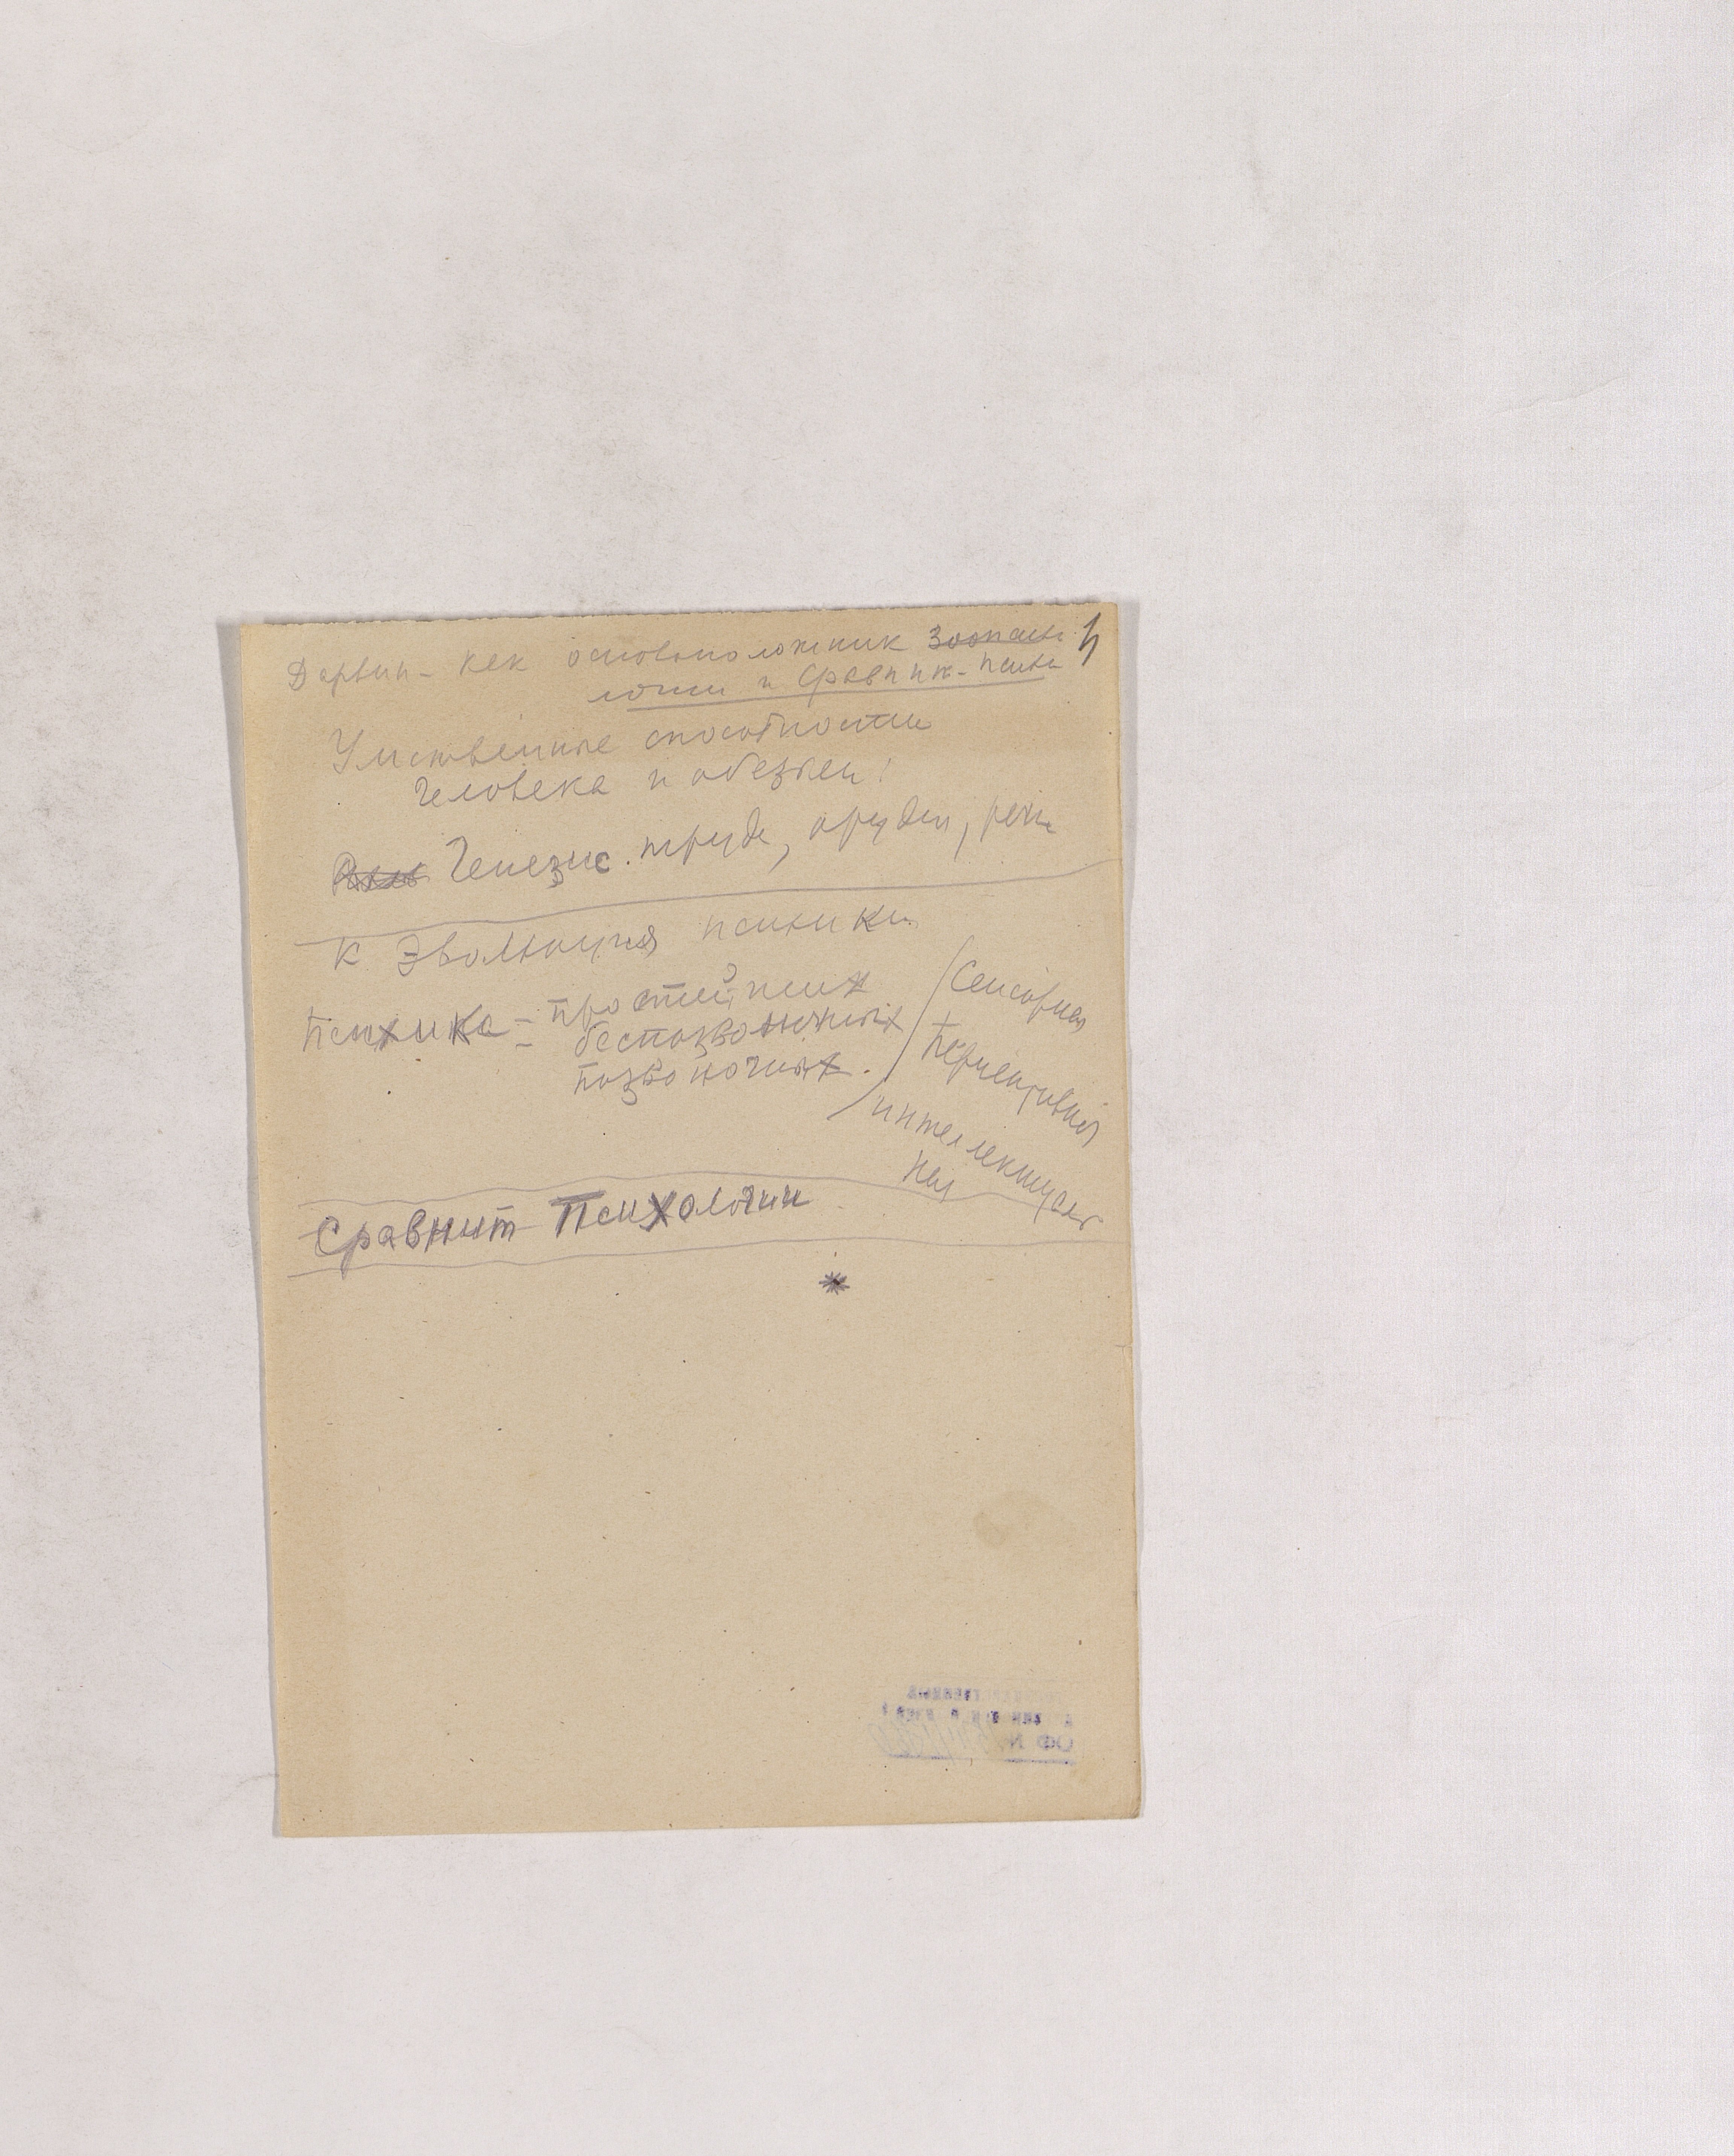 Дарвин - как основоположник Зоопсихо
логии и Сравнит. психо
Умственные способности
человека и обезьян!
Генезис труда, орудий, речи
К Эволюция психики
Психика - простейших
беспозвоночных
позвоночных.
Сенсорная
Перцептивная
интеллектуаль
ная
Сравнит Психологии
*
ОФ №